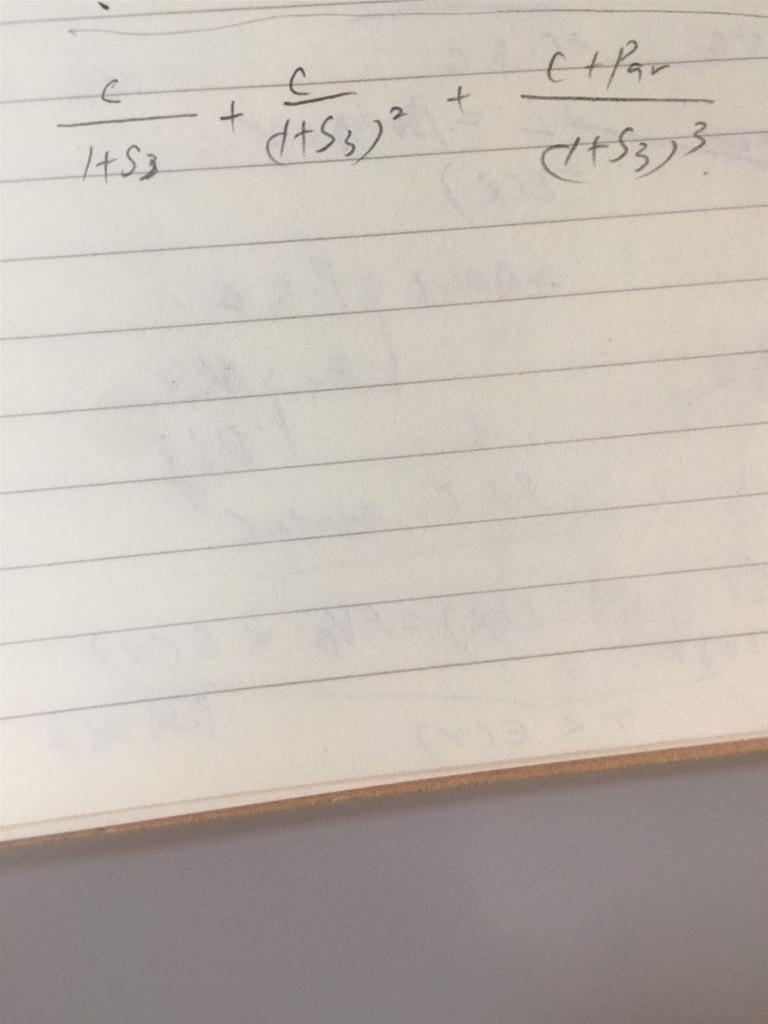 C/(1+S3) + C/(1+S3)² + (C+Par)/(1+S3)³